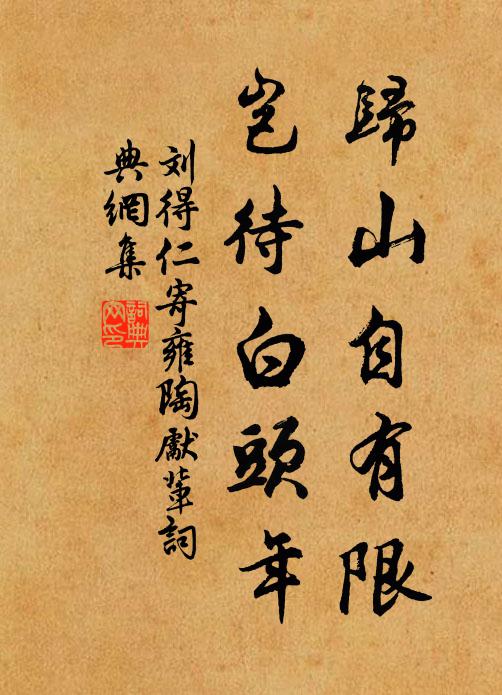 歸山自有限
豈待白頭年
刘得仁寄雍陶獻輩詞
典網集
詞典網印